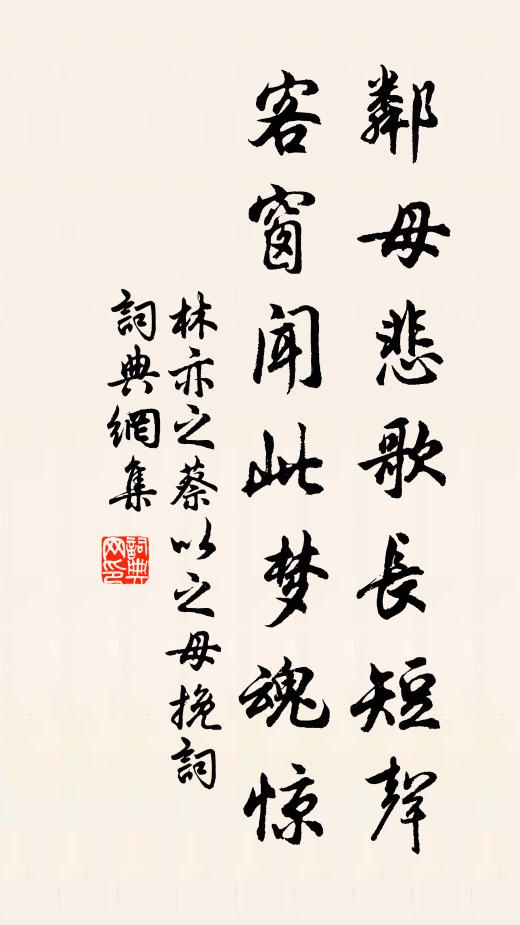 鄰母悲歌長短聲
客窗聞此梦魂惊
林亦之蔡以之母挽詞
詞典網集
詞典网印